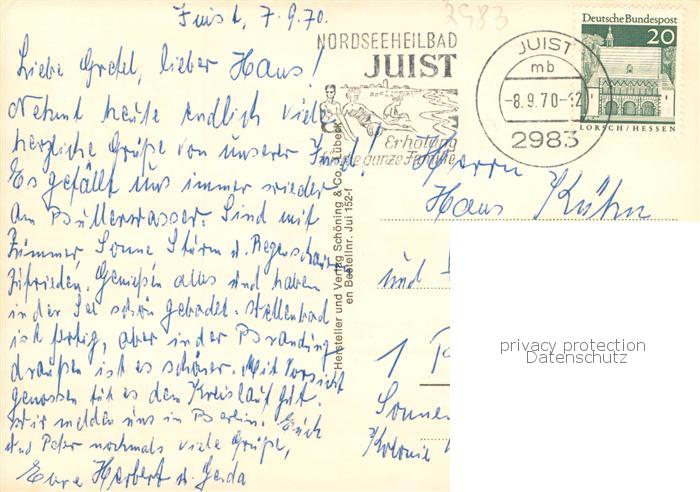 Juist, 7.9.70.
Liebe Gretel, lieber Hans!
Nehmt heute endlich viele
herzliche Grüße von unserer Insel!
Es gefällt uns immer wieder
am Butterwasser. Sind mit
Zimmer, Sonne Sturm u. Regenschauer
zufrieden. Genießen alles und haben
in der See schön gebadet. Wellenbad
ist fertig, aber in der Brandung
draußen ist es schöner. Mit Vorsicht
genossen tut es dem Kreislauf gut.
Wir melden uns in Berlin. Euch
und Peter nochmals viele Grüße,
Eure Herbert u. Gerda
Hersteller und Verlag Schöning & Co., Lübeck
en Bestellnr. Jui 152-f
2983
NORDSEEHEILBAD
JUIST
Erholung
für die ganze Familie
JUIST
mb
-8.9.70-12
2983
Deutsche Bundespost
20
LORSCH/HESSEN
Herrn
Hans Kühn
und
1
Sonnen
Kolonie
privacy protection
Datenschutz